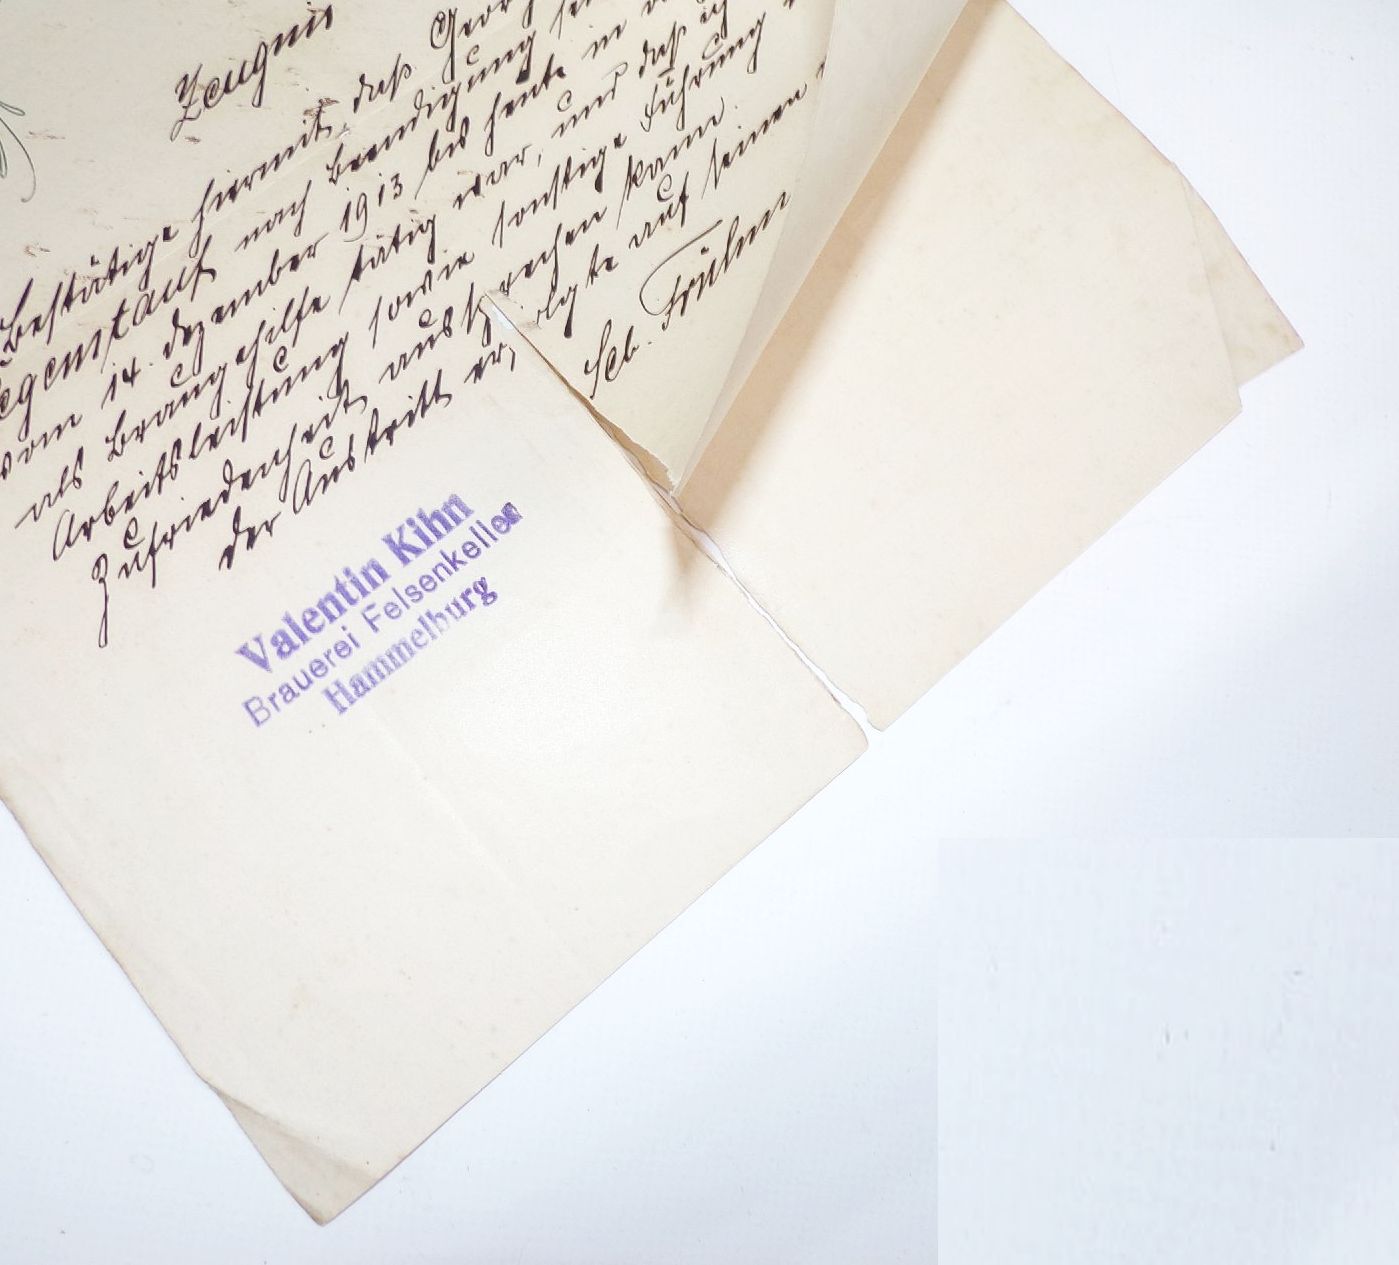 Zeugnis
Bestätige hiermit, daß Georg
Regenstauf nach Beendigung sei
vom 14. Dezember 1913 bis heute in
als Braugehilfe tätig war, und daß ich
Arbeitsleistung sowie sonstige Führung
Zufriedenheit aussprechen kann.
der Austritt erfolgte auf seinen
Seb.
Valentin Kihn
Brauerei Felsenkeller
Hammelburg